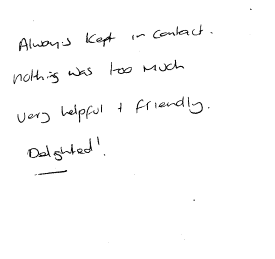 Always kept in contact.
nothing was too much
very helpful + friendly.
Delighted!